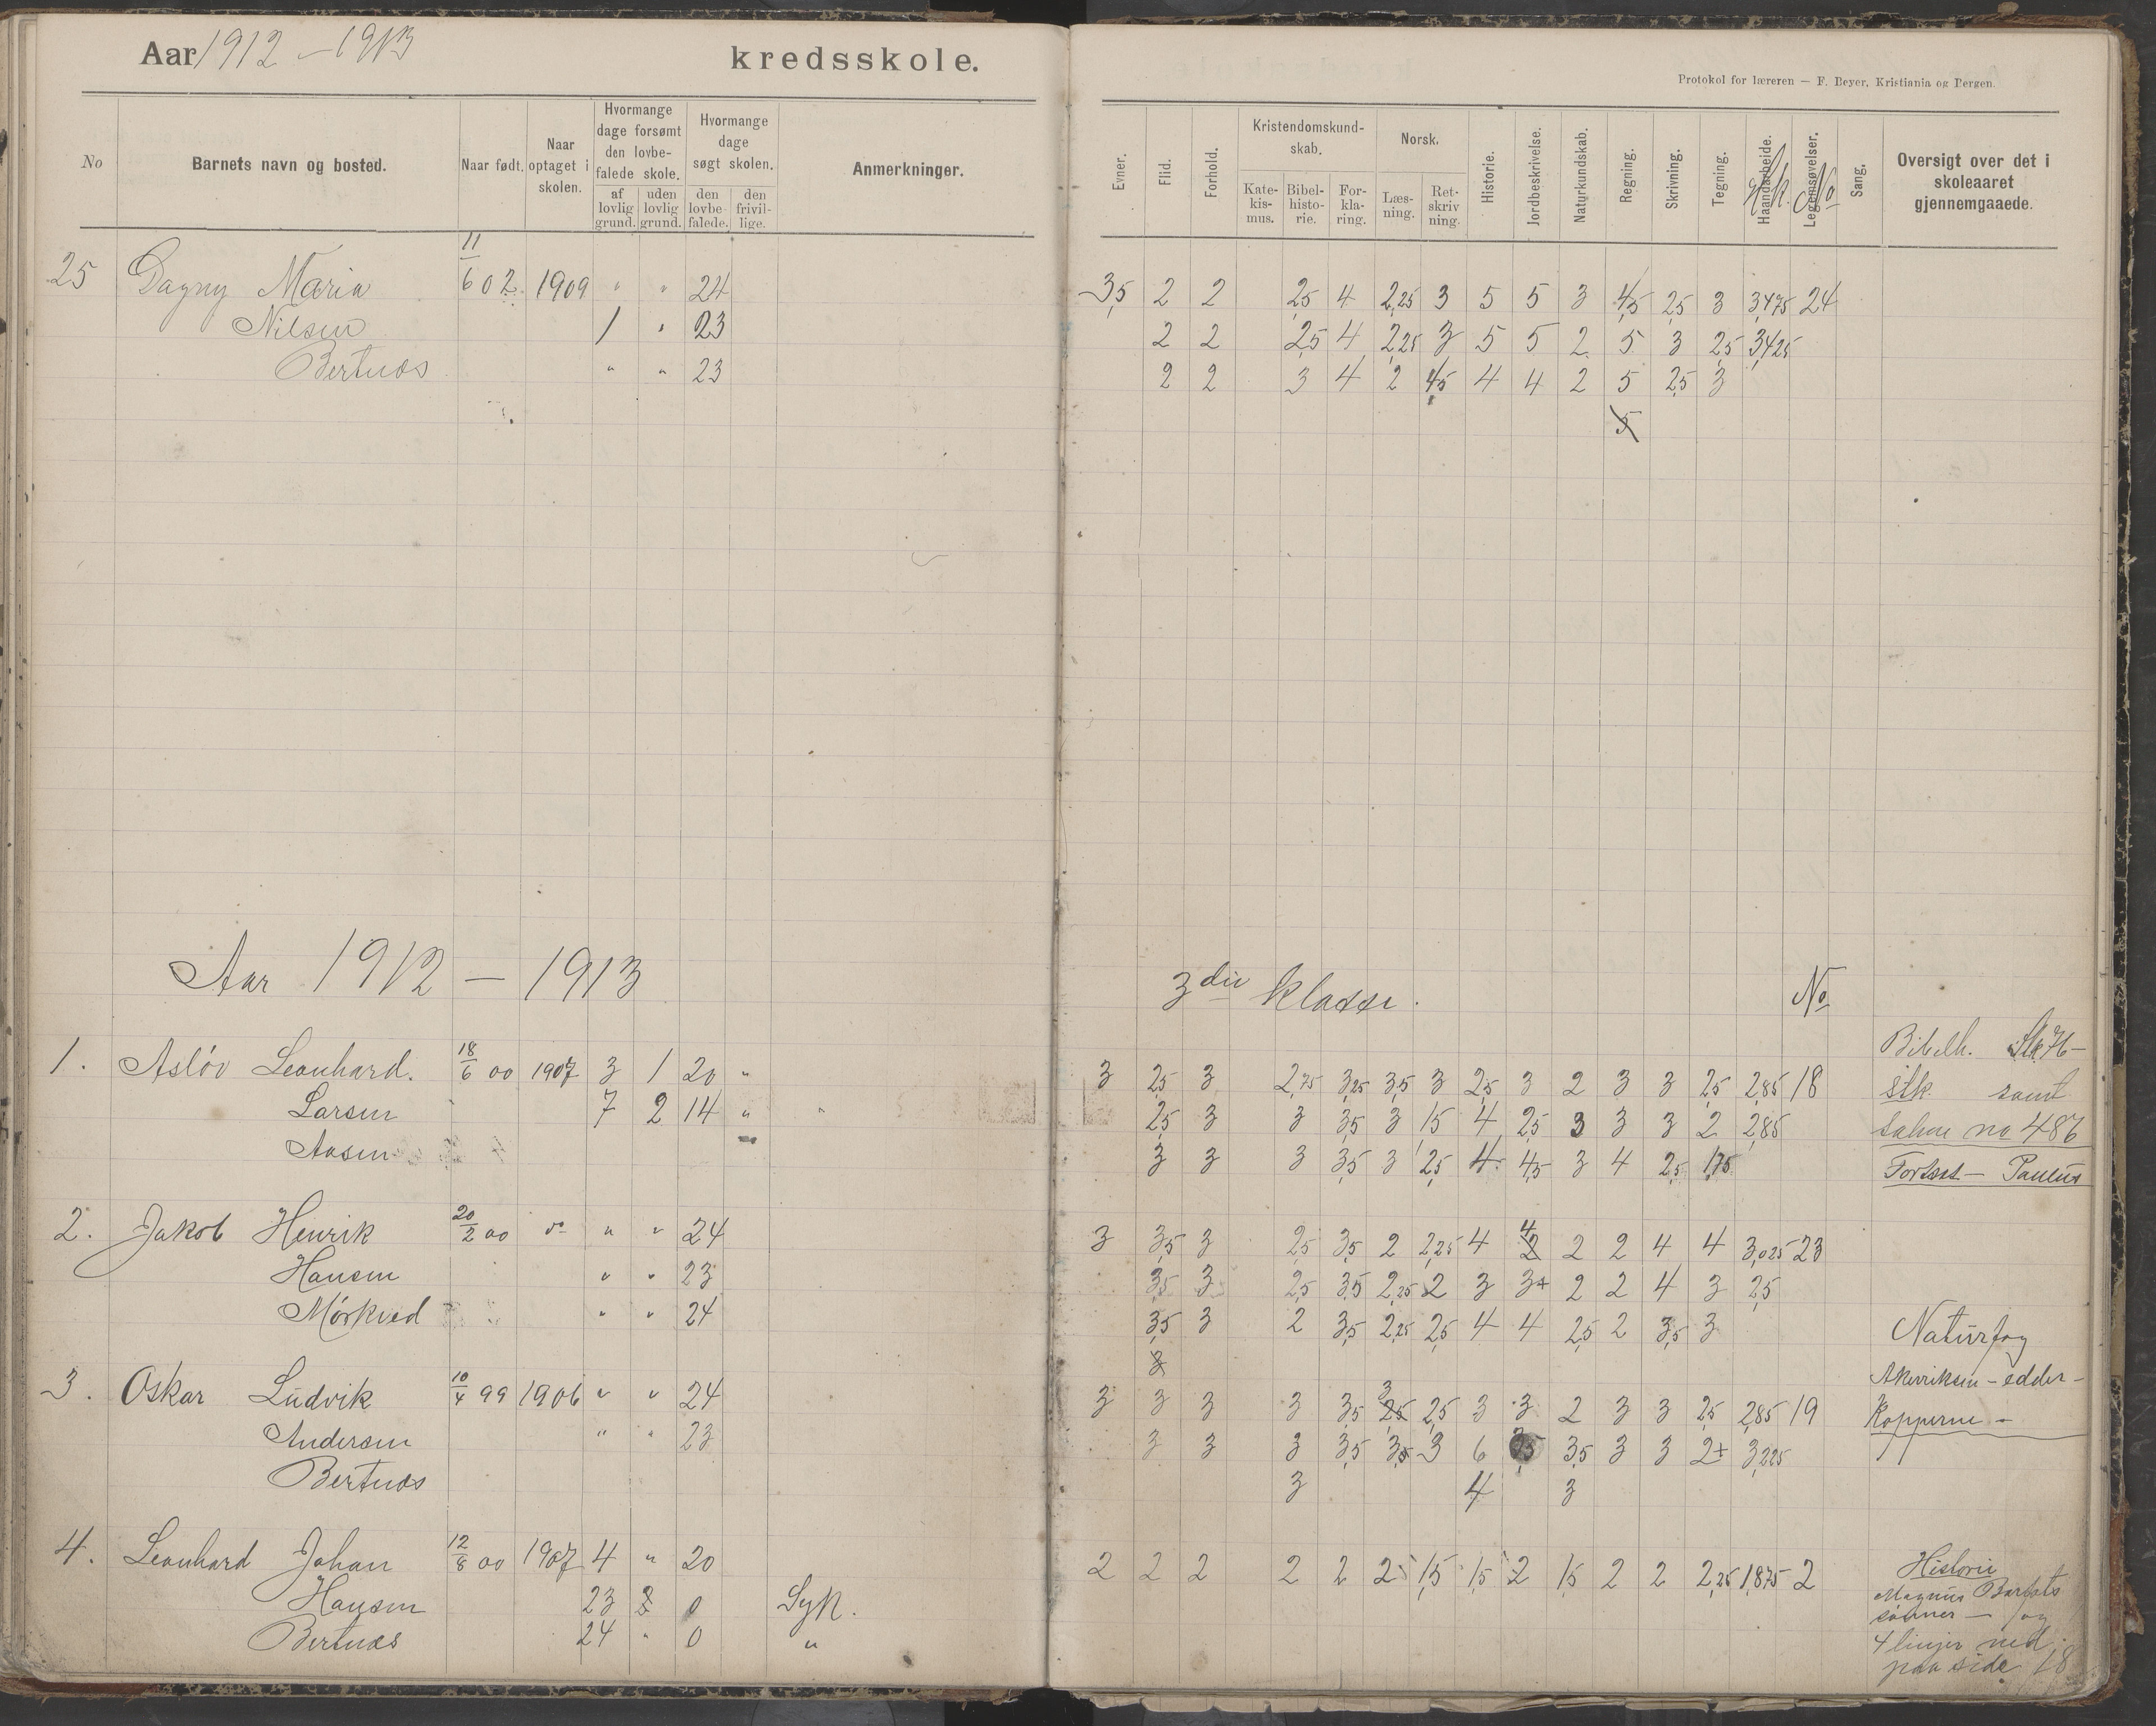 Aar 1912 – 1913 kredsskole.
Protokol for læreren — F. Beyer, Kristiania og Bergen.
No Barnets navn og bosted. Naar født. Naar optaget i skolen. Hvormange dage forsømt den lovbefalede skole. af lovlig grund. uden lovlig grund. Hvormange dage søgt skolen. den lovbefalede. den frivillige. Anmerkninger.
Evner. Flid. Forhold. Kristendomskundskab. Katekismus. Bibelhistorie. Forklaring. Norsk. Læsning. Retskrivning. Historie. Jordbeskrivelse. Naturkundskab. Regning. Skrivning. Tegning. Haandarbeide. Legemsøvelser. No Sang. Oversigt over det i skoleaaret gjennemgaaede.
25 Dagny Maria 11/6 02. 1909 " " 24 3,5 2 2 2,5 4 2,25 3 5 5 3 4,5 2,5 3 3,475 24
Nilsen 1 " 23 2 2 2,5 4 2,25 3 5 5 2 5 3 2,5 3,425
Bertnæs " " 23 2 2 3 4 2 4,5 4 4 2 5 2,5 3
5
Aar 1912 – 1913 3die klasse. No
Bibelh.
1. Asløv Leonhard. 18/6 00 1907 3 1 20 " 3 2,5 3 2,75 3,25 3,5 3 2,5 3 2 3 3 2,5 2,85 18 stk. samt
Larsen 7 2 14 " " 2,5 3 3 3,5 3 1,5 4 2,5 3 3 3 2 2,85 salme no 486
Aasen 3 3 3 3,5 3 2,5 4 4,5 3 4 2,5 1,75 Fortsat – Paulus
2. Jakob Henrik 20/2 00 " " 24 3 3,5 3 2,5 3,5 2 2,25 4 4 2 2 2 4 4 3,025 23
Hansen " " 23 3,5 3 2,5 3,5 2,25 2 3 3+ 2 2 4 3 2,5
Mørkved " " 24 3,5 3 2 3,5 2,25 2,5 4 4 2,5 2 3,5 3 Naturfag
3. Oskar Ludvik 10/4 99 1906 " " 24 3 3 3 3 3,5 3 2,5 2,5 3 3 2 3 3 2,5 2,85 19 Kopperne –
Andersen " " 23 3 3 3 3,5 3,5 3 6 3,5 3 3 2+ 3,225
Bertnæs 3 4 3
4. Leonhard Johan 12/8 00 1907 4 " 20 2 2 2 2 2 2 1,5 1,5 2 1,5 2 2 2,25 1,875 2 Historie
Hansen 23 0 Syk. Magnus Barfots
sønner – og
Bertnæs 24 " 0 " 4 linjer ned
paa side 18